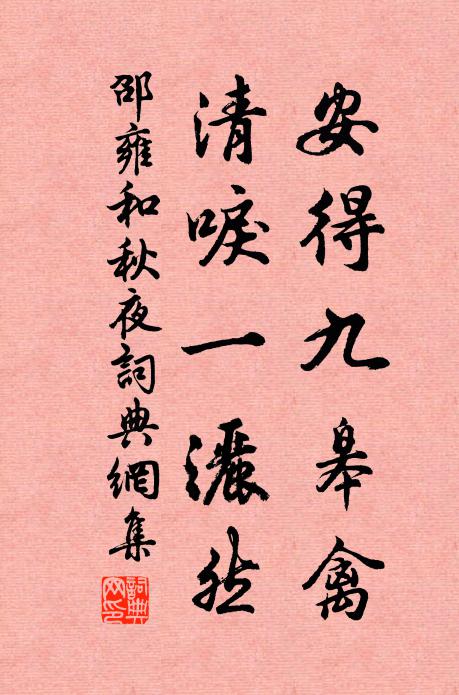 安得九皋禽
清唳一灑然
邵雍和秋夜詞典網集
詞典網印